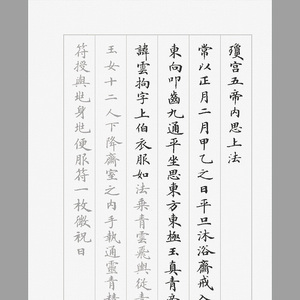 瓊宮五帝内思上法
常以正月二月甲乙之日平旦沐浴齋戒入
東向叩齒九通平坐思東方東極玉真青帝
諱雲拘字上伯衣服如法乘青雲飛輿從青
玉女十二人下降齋室之内手執通靈青精
符授與兆身兆便服符一枚微祝曰